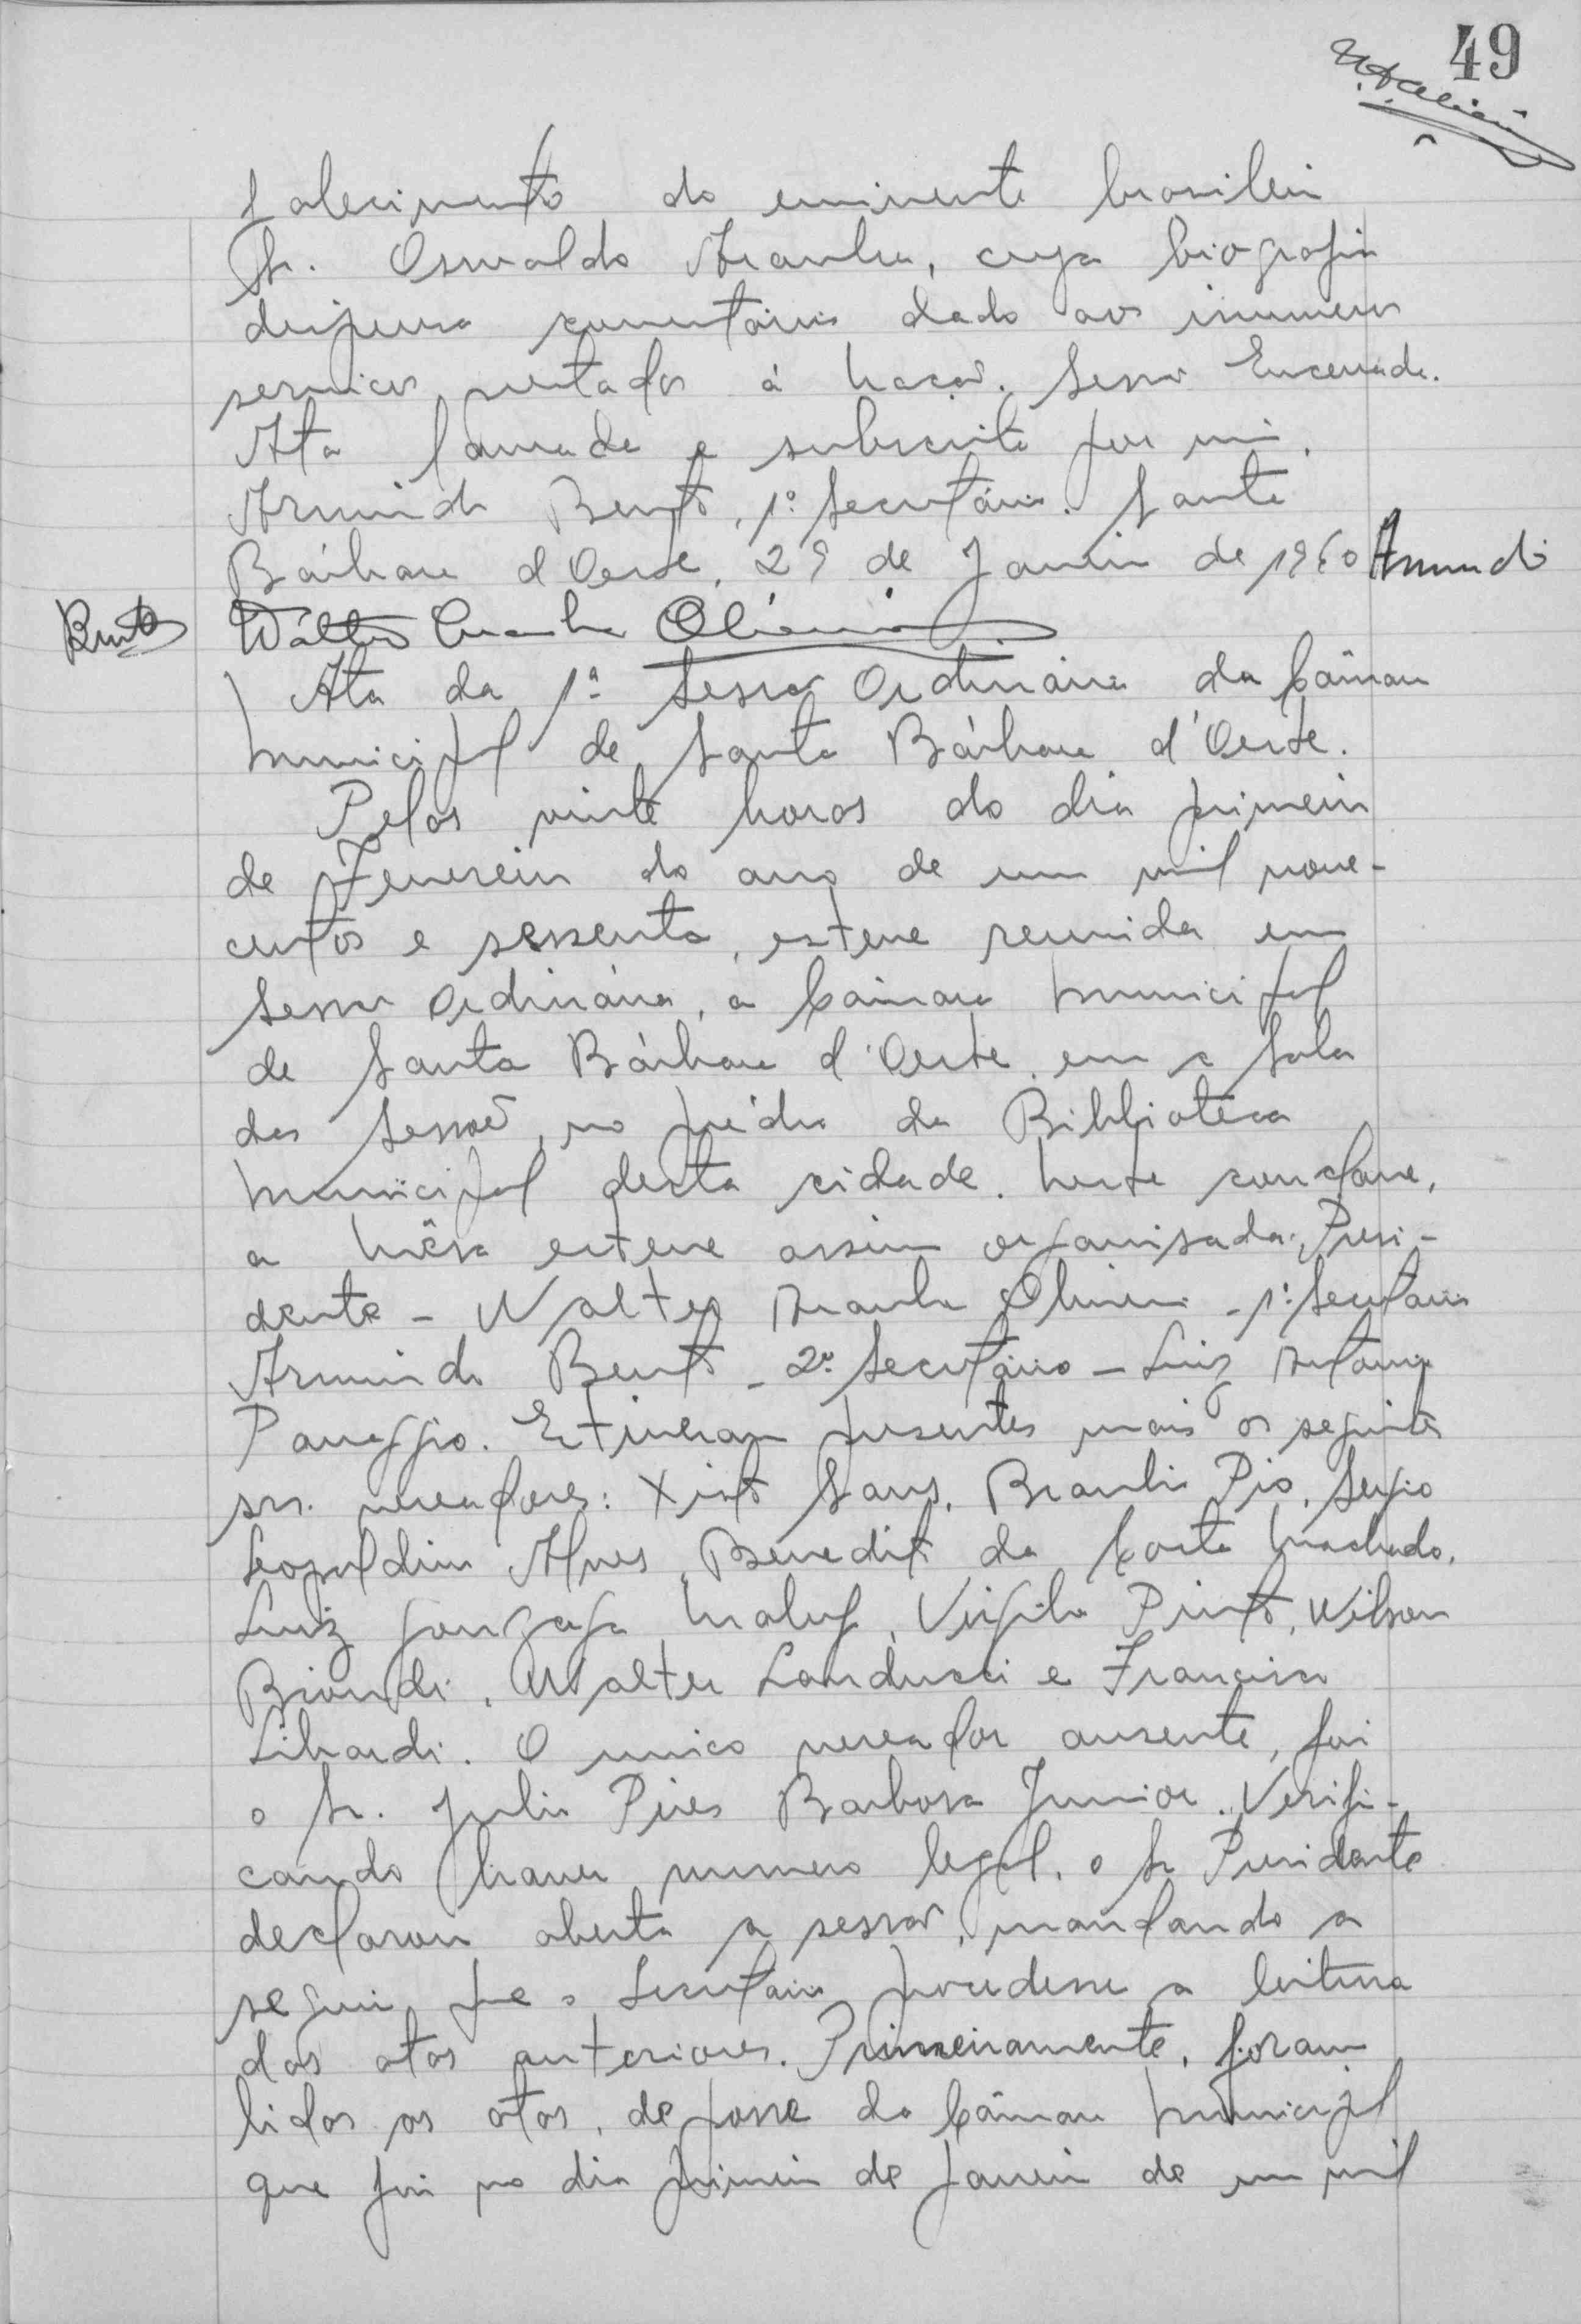 49
falecimento do eminente brasileiro
Sr. Oswaldo Aranha, cuja biografia
dispensa comentários dado aos inumeros
serviços prestados á Nação. Sessão Encerrada.
Ata lavrada e subscrita por mim.
Armindo Bento, 1º Secretário. Santa
Bárbara d'Oeste, 29 de Janeiro de 1960 Armindo
Bento Walter Aranha Oliveira
Ata da 1ª Sessão Ordinária da Câmara
Municipal de Santa Bárbara d'Oeste.
Pelas vinte horas do dia primeiro
de Fevereiro do ano de um mil nove-
centos e sessenta, esteve reunida em
Sessão Ordinária, a Câmara Municipal
de Santa Bárbara d'Oeste, em a Sala
das Sessões, no prédio da Biblioteca
Municipal desta cidade. Neste conclave,
a Mêsa esteve assim organisada: Presi-
dente - Walter Aranha Oliveira - 1º Secretário
Armindo Bento - 2º Secretário - Luiz Antonio
Panaggio. Estiveram presentes mais os seguintes
srs. vereadores: Xisto Sans, Braulio Pio, Sergio
Leopoldino Alves, Benedito da Costa Machado,
Luiz Gonzaga Maluf, Virgilio Pinto, Wilson
Biondi, Walter Landucci e Francisco
Libardi. O unico vereador ausente, foi
o Sr. Julio Pires Barbosa Junior. Verifi-
cando haver numero legal, o Sr Presidente
declarou aberta a sessão, mandando a
seguir que o Secretário procedesse a leitura
das atas anteriores. Primeiramente, foram
lidas as atas, de posse da Câmara Municipal
que foi no dia primeiro de Janeiro de um mil